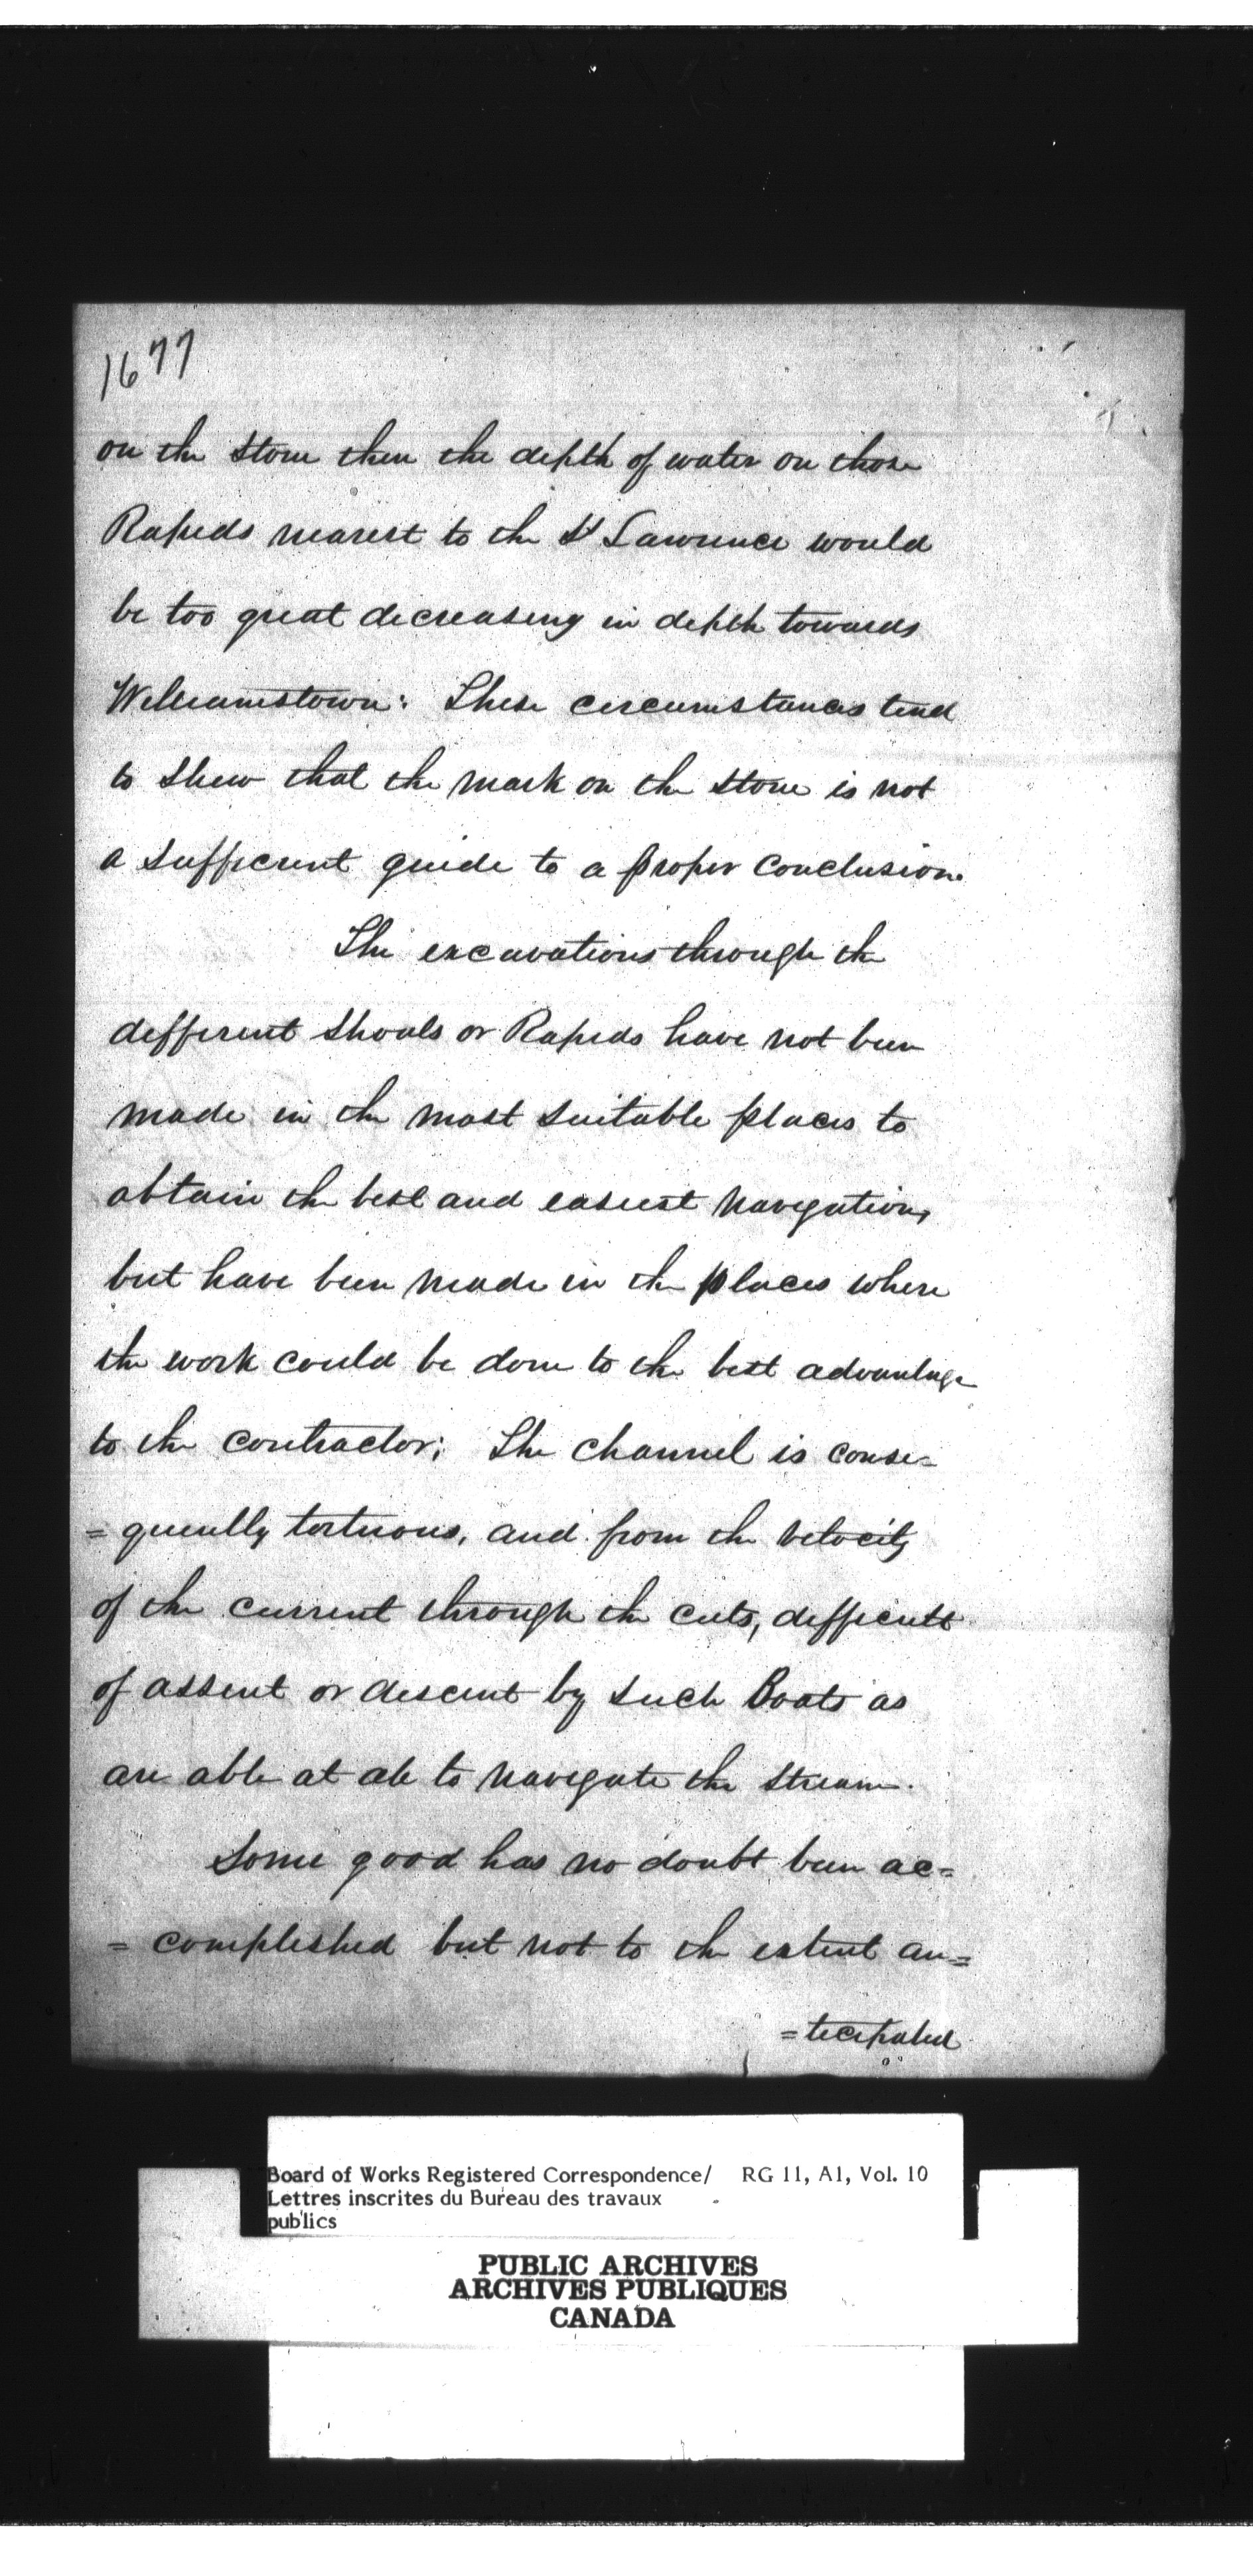 1677
on the stone then the depth of water on those
Rapids nearest to the St Lawrence would
be too great decreasing in depth towards
Williamstown: These circumstances tend
to shew that the mark on the stone is not
a sufficient guide to a proper conclusion.
The excavations through the
different Shoals or Rapids have not been
made in the most suitable places to
obtain the best and easiest navigation,
but have been made in the places where
the work could be done to the best advantage
to the contractor; The channel is conse=
=quently tortuous, and from the velocity
of the current through the cuts, difficult
of assent or descent by such Boats as
are able at all to navigate the stream.
Some good has no doubt been ac=
=complished but not to the extent an=
=ticipated
Board of Works Registered Correspondence/ RG 11, A1, Vol. 10
Lettres inscrites du Bureau des travaux
publics
PUBLIC ARCHIVES
ARCHIVES PUBLIQUES
CANADA